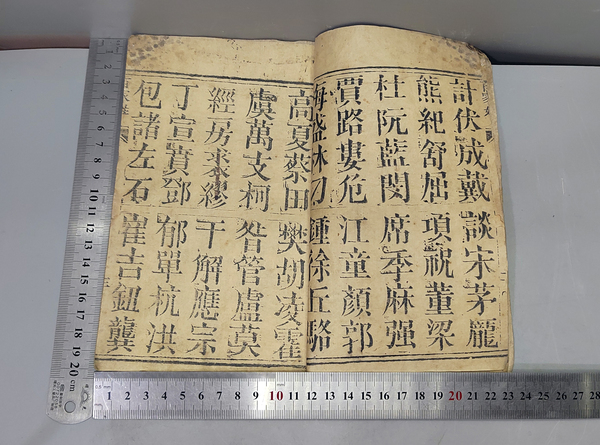 計伏成戴談宋茅龎
熊紀舒屈項祝董梁
杜阮藍閔席季麻强
賈路婁危江童顏郭
梅盛林刁鍾徐丘駱
高夏蔡田樊胡凌霍
虞萬支柯昝管盧莫
經房裘繆干解應宗
丁宣賁鄧郁單杭洪
包諸左石崔吉鈕龔
1 2 3 4 5 6 7 8 9 10 11 12 13 14 15 16 17 18 19 20 cm
1 2 3 4 5 6 7 8 9 10 11 12 13 14 15 16 17 18 19 20 21 22 23 24 25 26 27 28